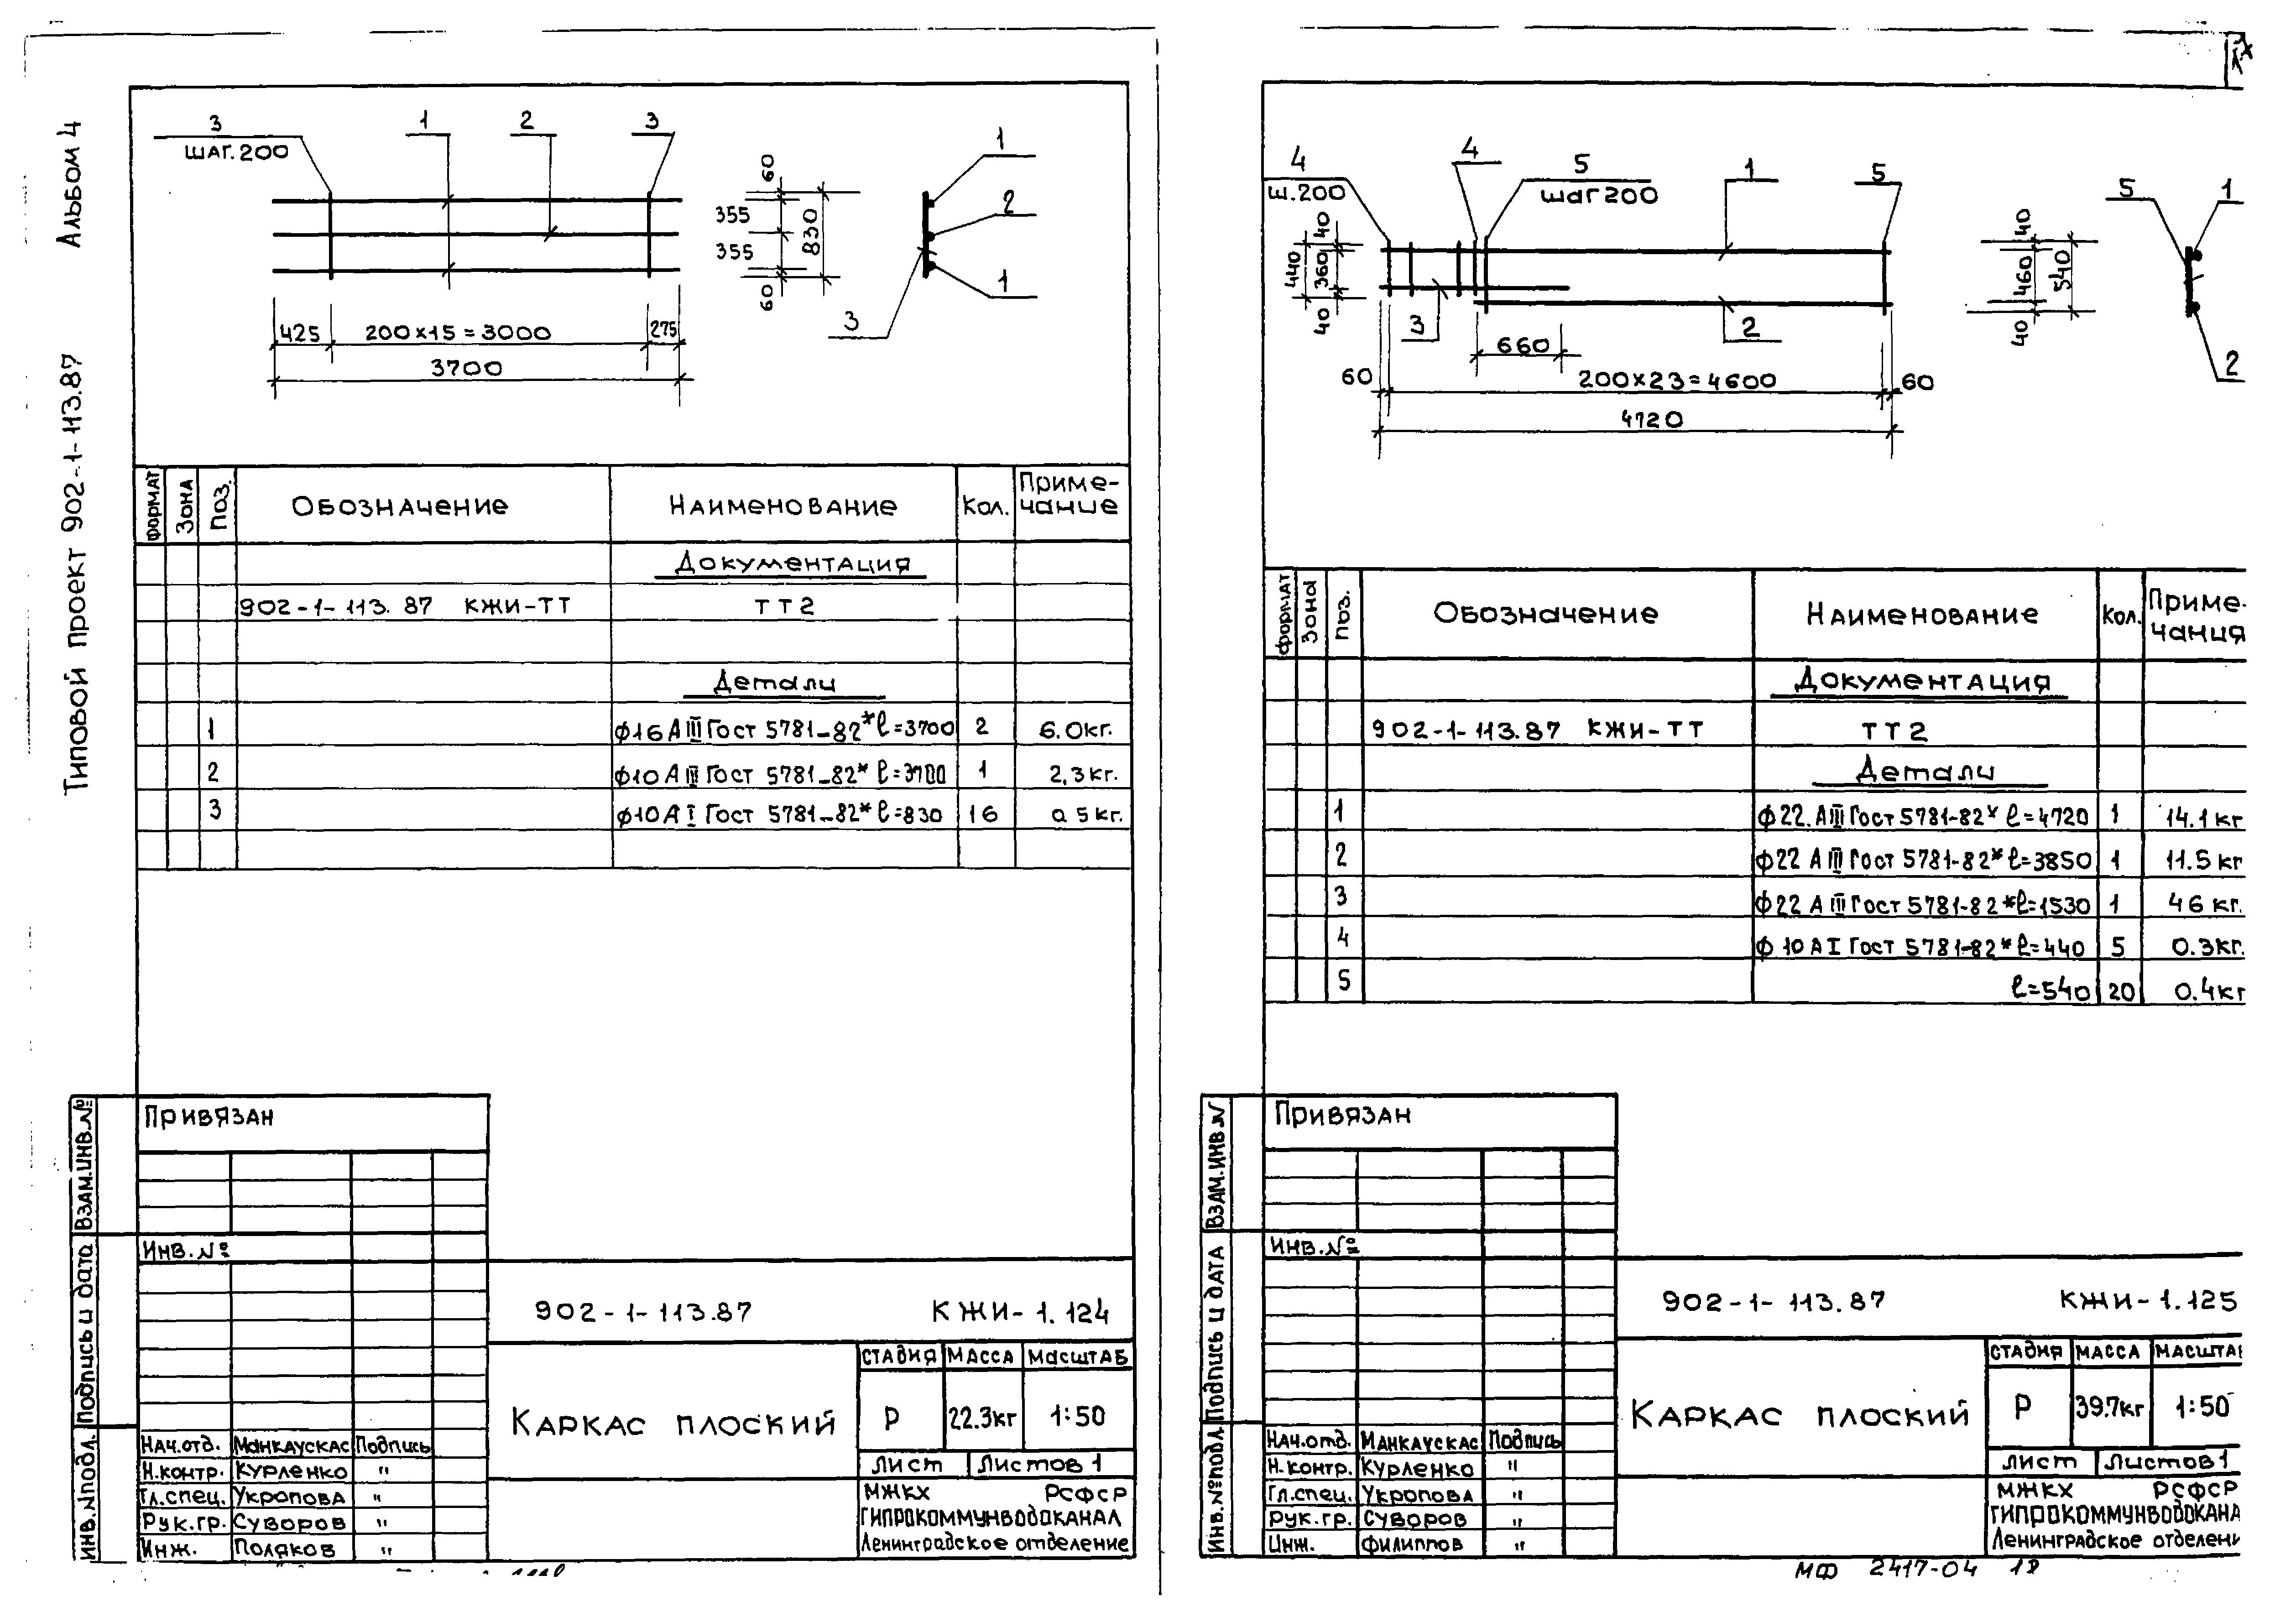 Типовой проект 902-1-113.87 Альбом 4
3
ШАГ.200
1
2
3
60
355
355
60
830
1
2
1
3
425
200×15=3000
275
3700
ФОРМАТ Зона Поз. Обозначение Наименование Кол. Приме-
чание
Документация
902-1-113.87 КЖИ-ТТ ТТ2
Детали
1 ф16 АIII Гост 5781-82* ℓ=3700 2 6.0кг.
2 ф10 АIII Гост 5781-82* ℓ=3700 1 2,3кг.
3 ф10 АI Гост 5781-82* ℓ=830 16 0.5кг.
Привязан
Инв.№
Инв.№подл. Подпись и дата Взам.инв.№
902-1-113.87 КЖИ-1.124
Каркас плоский
Стадия Масса Масштаб
Р 22.3кг 1:50
Лист Листов 1
Нач.отд. Манкаускас Подпись
Н.контр. Курленко "
Гл.спец. Укропова "
Рук.гр. Суворов "
Инж. Поляков "
МЖКХ РСФСР
ГИПРОКОММУНВОДОКАНАЛ
Ленинградское отделение
4
ш.200
4
5
шаг200
1
5
40
360
40
440
3
2
660
60
200×23=4600
60
4720
40
460
40
540
5
1
2
ФОРМАТ Зона Поз. Обозначение Наименование Кол. Приме-
чания
Документация
902-1-113.87 КЖИ-ТТ ТТ2
Детали
1 ф22.АIII Гост 5781-82* ℓ=4720 1 14.1кг
2 ф22 АIII Гост 5781-82* ℓ=3850 1 11.5кг
3 ф22 АIII Гост 5781-82* ℓ=1530 1 46 кг.
4 ф10 АI Гост 5781-82* ℓ=440 5 0.3кг.
5 ℓ=540 20 0.4кг
Привязан
Инв.№
Инв.№подл Подпись и дата Взам.инв.N
902-1-113.87 КЖИ-1.125
Каркас плоский
Стадия Масса Масштаб
Р 39.7кг 1:50
Лист Листов 1
Нач.отд. Манкаускас Подпись
Н.контр. Курленко "
Гл.спец. Укропова "
Рук.гр. Суворов "
Инж. Филиппов "
МЖКХ РСФСР
ГИПРОКОММУНВОДОКАНА
Ленинградское отделени
МФ 2417-04 18